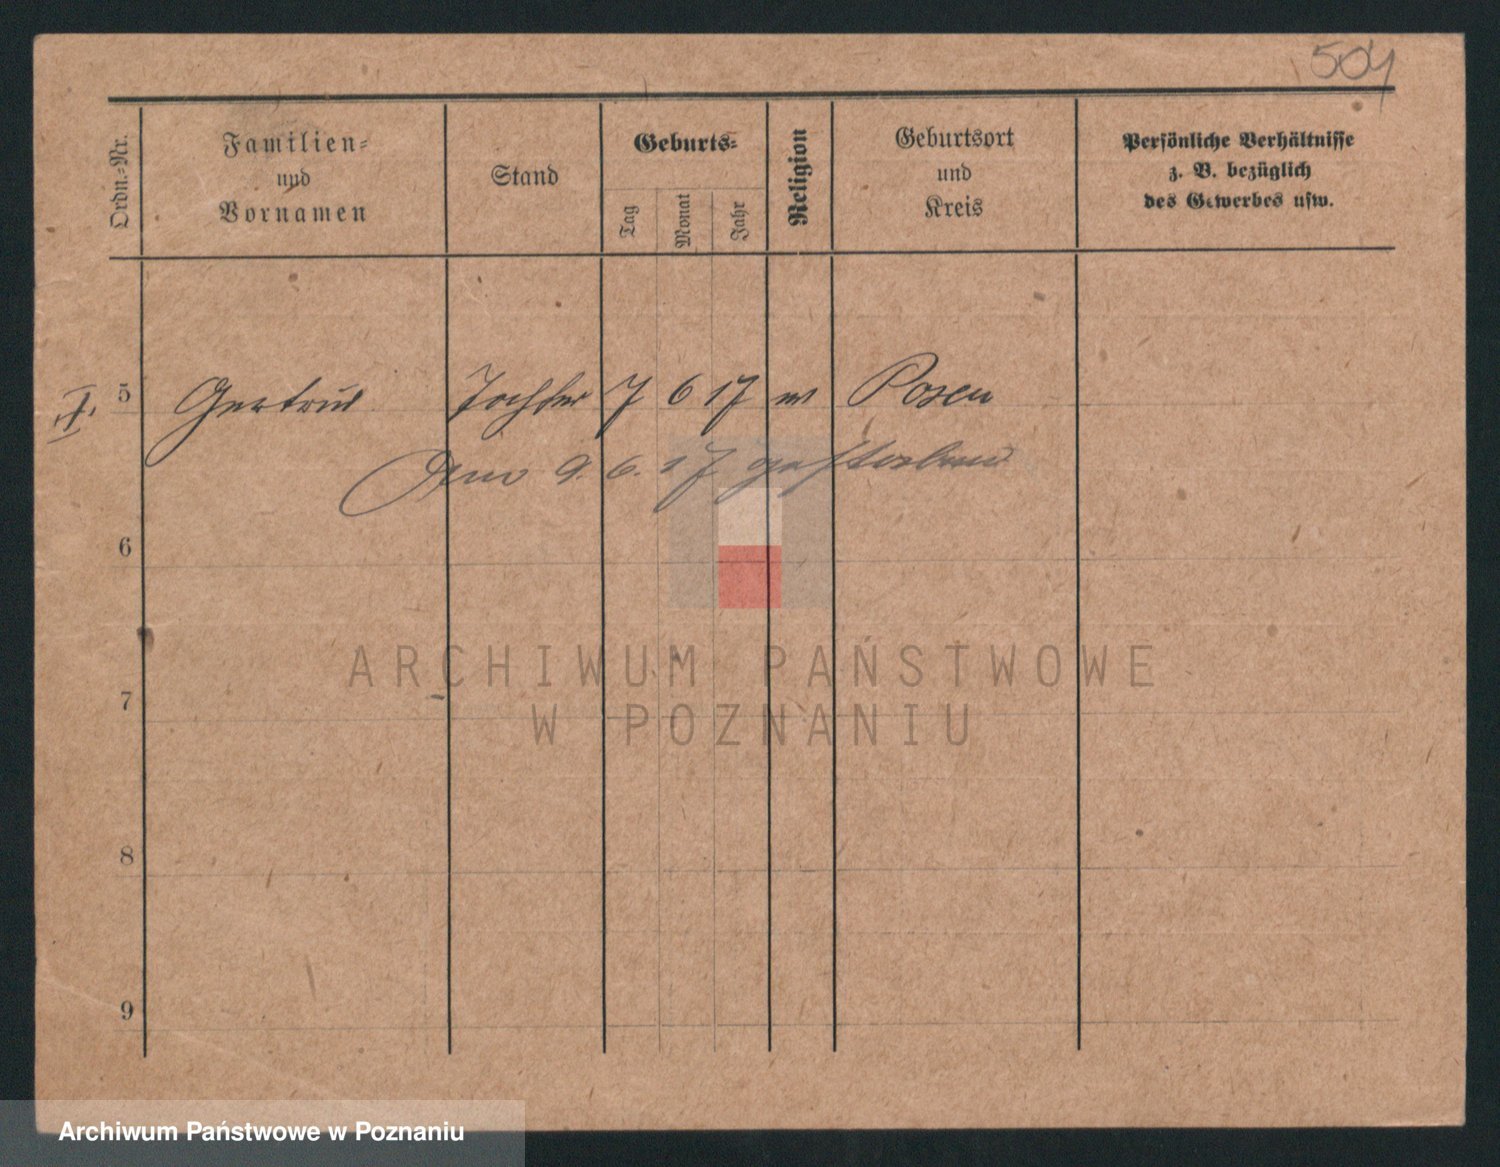 504
Ordn.-Nr.
Familien-
und
Vornamen
Stand
Geburts-
Tag
Monat
Jahr
Religion
Geburtsort
und
Kreis
Persönliche Verhältnisse
z. B. bezüglich
des Gewerbes usw.
II. 5 Gertrud Tochter 7 6 17 Posen
Am 9. 6. 17 gestorben
6
7
8
9
ARCHIWUM PAŃSTWOWE
W POZNANIU
Archiwum Państwowe w Poznaniu